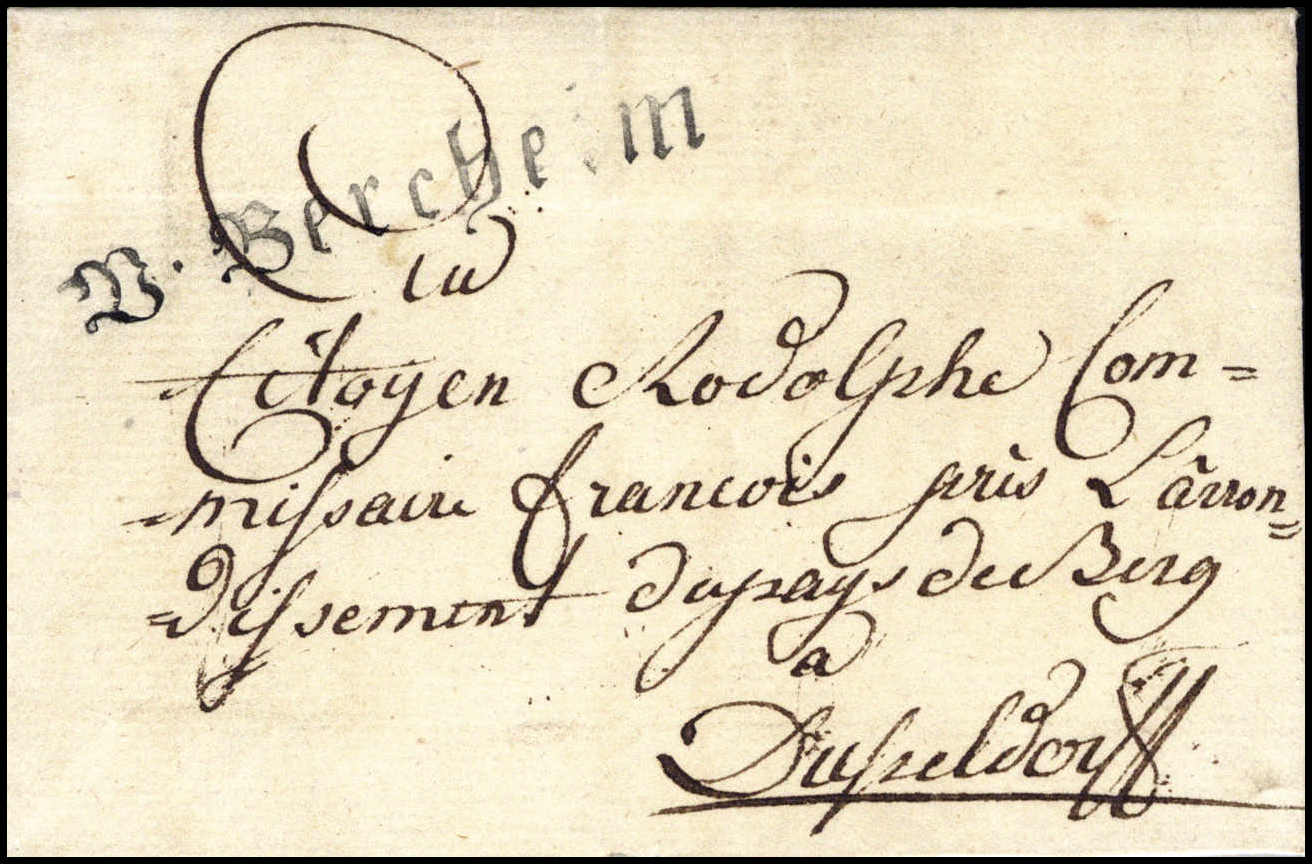 V. Bercheim
Au
Citoyen Rodolphe Com=
=missaire francois près L'árron=
=dissement du pays de Berg
a
Dusseldorff